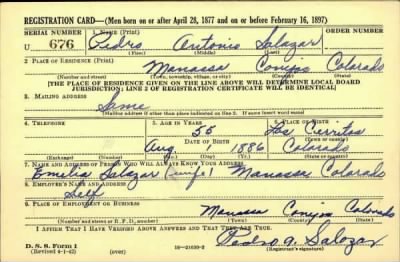 REGISTRATION CARD—(Men born on or after April 28, 1877 and on or before February 16, 1897)
SERIAL NUMBER 1. NAME (Print) ORDER NUMBER
U 676 Pedro Antonio Salazar
(First) (Middle) (Last)
2. PLACE OF RESIDENCE (Print)
Manassa Conejos Colorado
(Number and street) (Town, township, village, or city) (County) (State)
[THE PLACE OF RESIDENCE GIVEN ON THE LINE ABOVE WILL DETERMINE LOCAL BOARD
JURISDICTION; LINE 2 OF REGISTRATION CERTIFICATE WILL BE IDENTICAL]
3. MAILING ADDRESS
Same
(Mailing address if other than place indicated on line 2. If same insert word same)
4. TELEPHONE 5. AGE IN YEARS 6. PLACE OF BIRTH
55 Los Cerritos
DATE OF BIRTH (Town or county)
Aug 1 1886 Colorado
(Exchange) (Number) (Mo.) (Day) (Yr.) (State or country)
7. NAME AND ADDRESS OF PERSON WHO WILL ALWAYS KNOW YOUR ADDRESS
Emelia Salazar (wife) Manassa Colorado
8. EMPLOYER'S NAME AND ADDRESS
Self
9. PLACE OF EMPLOYMENT OR BUSINESS
Manassa Conejos Colorado
(Number and street or R. F. D. number) (Town) (County) (State)
I AFFIRM THAT I HAVE VERIFIED ABOVE ANSWERS AND THAT THEY ARE TRUE.
D. S. S. Form 1
(Revised 4-1-42) (over) 16—21630-2 Pedro A. Salazar
(Registrant's signature)